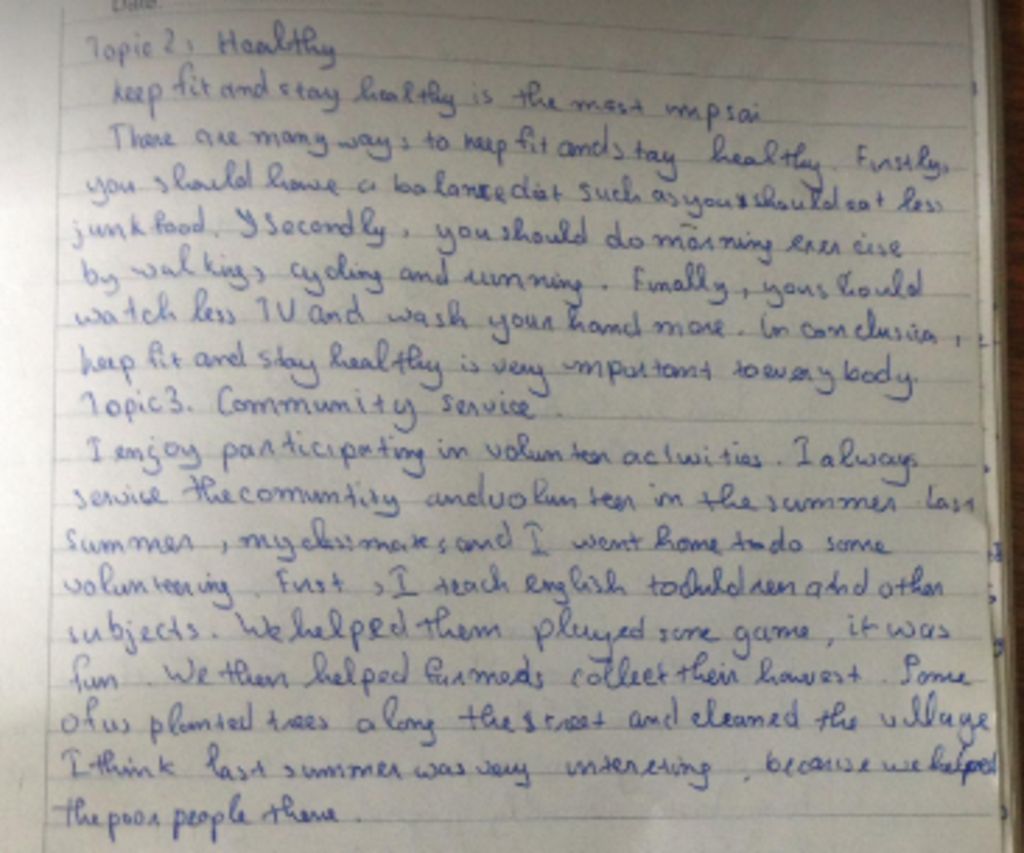 Topic 2: Healthy
keep fit and stay healthy is the most
There are many ways to keep fit and stay healthy. Firstly,
you should have a balance diet such as you should eat less
junk food. Secondly, you should do morning exercise
by walking, cycling and running. Finally, you should
watch less TV and wash your hand more. In conclusion,
keep fit and stay healthy is very important to every body.
Topic 3. Community service.
I enjoy participating in volunteer activities. I always
service the comuntity and volunteer in the summer last
summer, my classmates and I went home to do some
volunteering. First, I teach english to children and other
subjects. We helped them played some game, it was
fun. We then helped collect their harvest. Some
of us planted trees along the street and cleaned the village
I think last summer was very, because we helped
the poor people there.